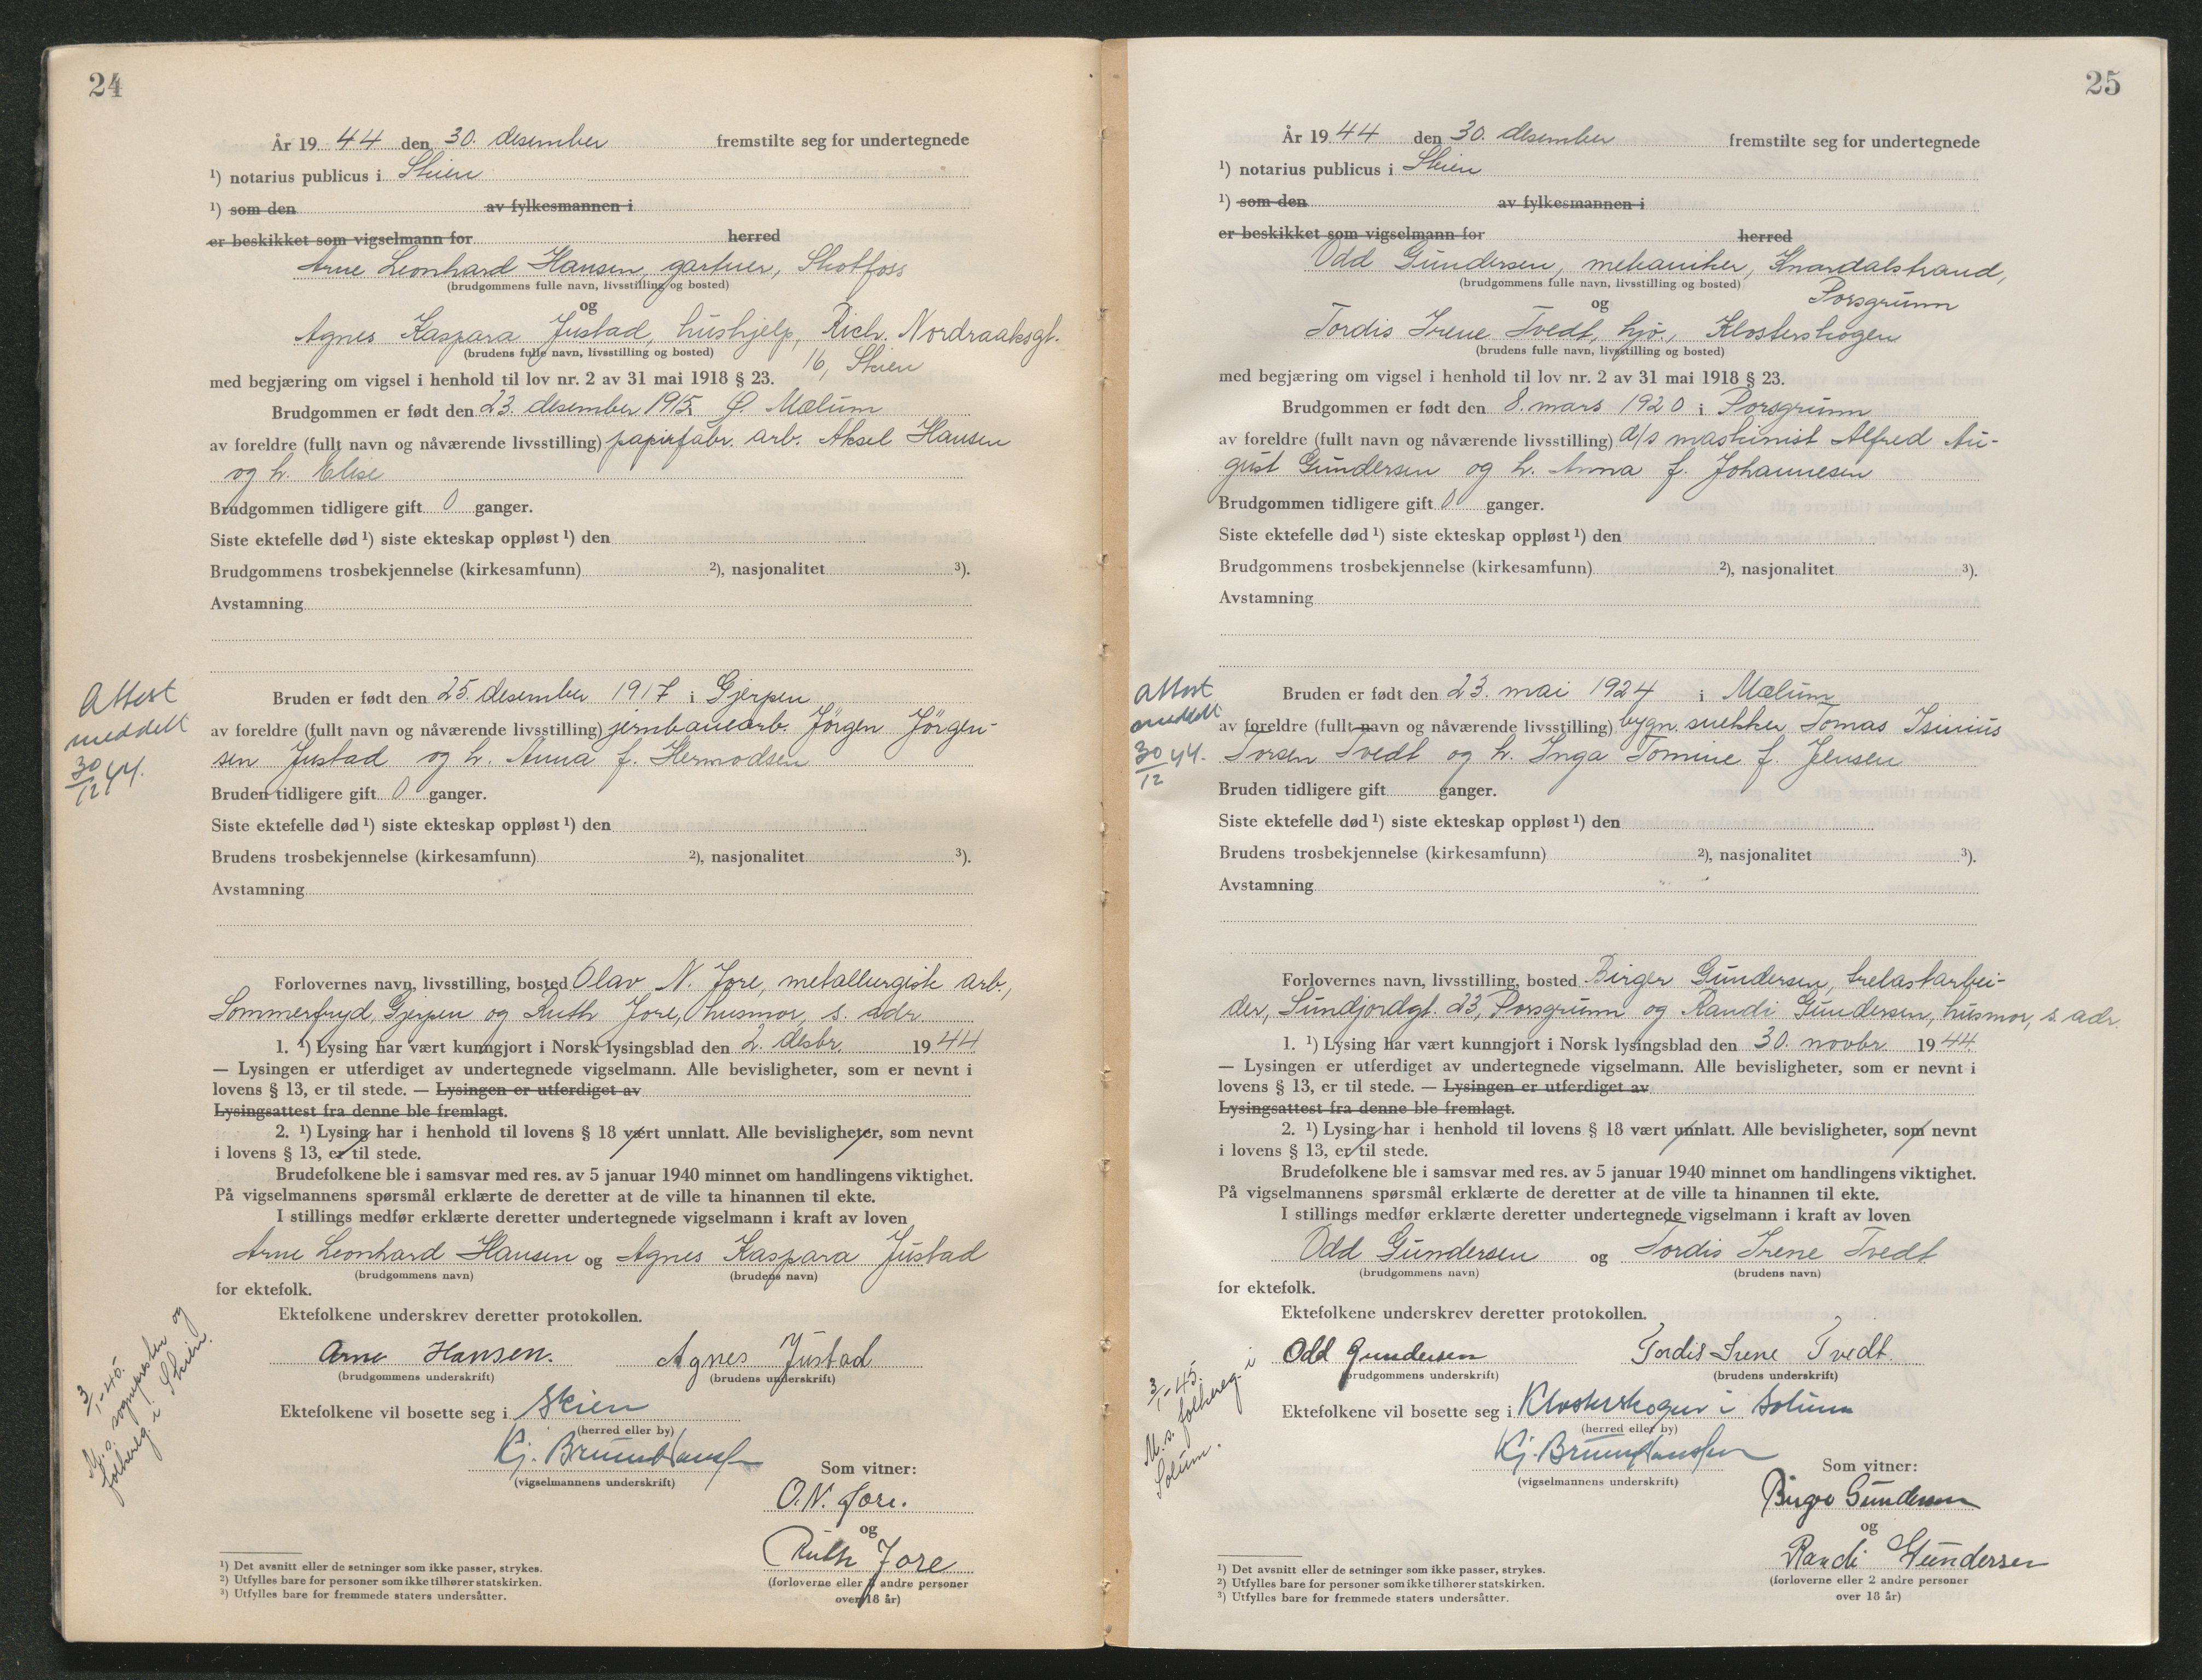 24
År 19 44 den 30. desember fremstilte seg for undertegnede
¹) notarius publicus i Skien
¹) som den av fylkesmannen i
er beskikket som vigselmann for herred
Arne Leonhard Hansen, gartner, Skotfoss
(brudgommens fulle navn, livsstilling og bosted)
og
Agnes Kaspara Justad, hushjelp, Rich. Nordraaksgt.
(brudens fulle navn, livsstilling og bosted)
16, Skien
med begjæring om vigsel i henhold til lov nr. 2 av 31 mai 1918 § 23.
Brudgommen er født den 23. desember 1915 Mælum
av foreldre (fullt navn og nåværende livsstilling) papirfabr. arb. Aksel Hansen
og h. Elise
Brudgommen tidligere gift 0 ganger.
Siste ektefelle død ¹) siste ekteskap oppløst ¹) den
Brudgommens trosbekjennelse (kirkesamfunn) ²), nasjonalitet ³).
Avstamning
Attest
meddelt
30/12 44.
Bruden er født den 25. desember 1917 i Gjerpen
av foreldre (fullt navn og nåværende livsstilling) jernbanearb. Jörgen Jörgen-
sen Justad og h. Anna f. Hermodsen
Bruden tidligere gift 0 ganger.
Siste ektefelle død ¹) siste ekteskap oppløst ¹) den
Brudens trosbekjennelse (kirkesamfunn) ²), nasjonalitet ³).
Avstamning
Forlovernes navn, livsstilling, bosted Olav N. Jore, metallurgisk arb.,
Sommerfryd, Gjerpen og Ruth Jore, husmor, s. adr.
1. ¹) Lysing har vært kunngjort i Norsk lysingsblad den 2. desbr. 19 44
— Lysingen er utferdiget av undertegnede vigselmann. Alle bevisligheter, som er nevnt i
lovens § 13, er til stede. — Lysingen er utferdiget av
Lysingsattest fra denne ble fremlagt.
2. ¹) Lysing har i henhold til lovens § 18 vært unnlatt. Alle bevisligheter, som nevnt
i lovens § 13, er til stede.
Brudefolkene ble i samsvar med res. av 5 januar 1940 minnet om handlingens viktighet.
På vigselmannens spørsmål erklærte de deretter at de ville ta hinannen til ekte.
I stillings medfør erklærte deretter undertegnede vigselmann i kraft av loven
Arne Leonhard Hansen og Agnes Kaspara Justad
(brudgommens navn) (brudens navn)
for ektefolk.
Ektefolkene underskrev deretter protokollen.
Arne Hansen. Agnes Justad
(brudgommens underskrift) (brudens underskrift)
3/1-45.
M. s. sognepresten og
folkereg. i Skien.
Ektefolkene vil bosette seg i Skien
(herred eller by)
Kj. Brunn Hansen
(vigselmannens underskrift)
Som vitner:
O.N. Jore.
og
Ruth Jore
(forloverne eller 2 andre personer
over 18 år)
¹) Det avsnitt eller de setninger som ikke passer, strykes.
²) Utfylles bare for personer som ikke tilhører statskirken.
³) Utfylles bare for fremmede staters undersåtter.
25
År 19 44 den 30. desember fremstilte seg for undertegnede
¹) notarius publicus i Skien
¹) som den av fylkesmannen i
er beskikket som vigselmann for herred
Odd Gundersen, mekaniker, Knardalstrand,
(brudgommens fulle navn, livsstilling og bosted)
Porsgrunn
og
Tordis Irene Tvedt, hjv., Klosterskogen
(brudens fulle navn, livsstilling og bosted)
med begjæring om vigsel i henhold til lov nr. 2 av 31 mai 1918 § 23.
Brudgommen er født den 8. mars 1920 i Porsgrunn
av foreldre (fullt navn og nåværende livsstilling) d/s maskinist Alfred Au-
gust Gundersen og h. Anna f. Johannesen
Brudgommen tidligere gift 0 ganger.
Siste ektefelle død ¹) siste ekteskap oppløst ¹) den
Brudgommens trosbekjennelse (kirkesamfunn) ²), nasjonalitet ³).
Avstamning
Attest
meddelt
30/12 44.
Bruden er født den 23. mai 1924 i Mælum
av foreldre (fullt navn og nåværende livsstilling) bygn. snekker Tomas Isinius
Torsen Tvedt og h. Inga Tomine f. Jensen
Bruden tidligere gift ganger.
Siste ektefelle død ¹) siste ekteskap oppløst ¹) den
Brudens trosbekjennelse (kirkesamfunn) ²), nasjonalitet ³).
Avstamning
Forlovernes navn, livsstilling, bosted Birger Gundersen, trelastarbei-
der, Sundjordgt. 23, Porsgrunn og Randi Gundersen, husmor, s. adr.
1. ¹) Lysing har vært kunngjort i Norsk lysingsblad den 30. novbr. 19 44.
— Lysingen er utferdiget av undertegnede vigselmann. Alle bevisligheter, som er nevnt i
lovens § 13, er til stede. — Lysingen er utferdiget av
Lysingsattest fra denne ble fremlagt.
2. ¹) Lysing har i henhold til lovens § 18 vært unnlatt. Alle bevisligheter, som nevnt
i lovens § 13, er til stede.
Brudefolkene ble i samsvar med res. av 5 januar 1940 minnet om handlingens viktighet.
På vigselmannens spørsmål erklærte de deretter at de ville ta hinannen til ekte.
I stillings medfør erklærte deretter undertegnede vigselmann i kraft av loven
Odd Gundersen og Tordis Irene Tvedt
(brudgommens navn) (brudens navn)
for ektefolk.
Ektefolkene underskrev deretter protokollen.
Odd Gundersen Tordis Irene Tvedt.
(brudgommens underskrift) (brudens underskrift)
3/1-45.
M. s. folkereg. i
Solum.
Ektefolkene vil bosette seg i Klosterskogen i Solum
(herred eller by)
Kj. Brunn Hansen
(vigselmannens underskrift)
Som vitner:
Birger Gundersen
og
Randi Gundersen
(forloverne eller 2 andre personer
over 18 år)
¹) Det avsnitt eller de setninger som ikke passer, strykes.
²) Utfylles bare for personer som ikke tilhører statskirken.
³) Utfylles bare for fremmede staters undersåtter.